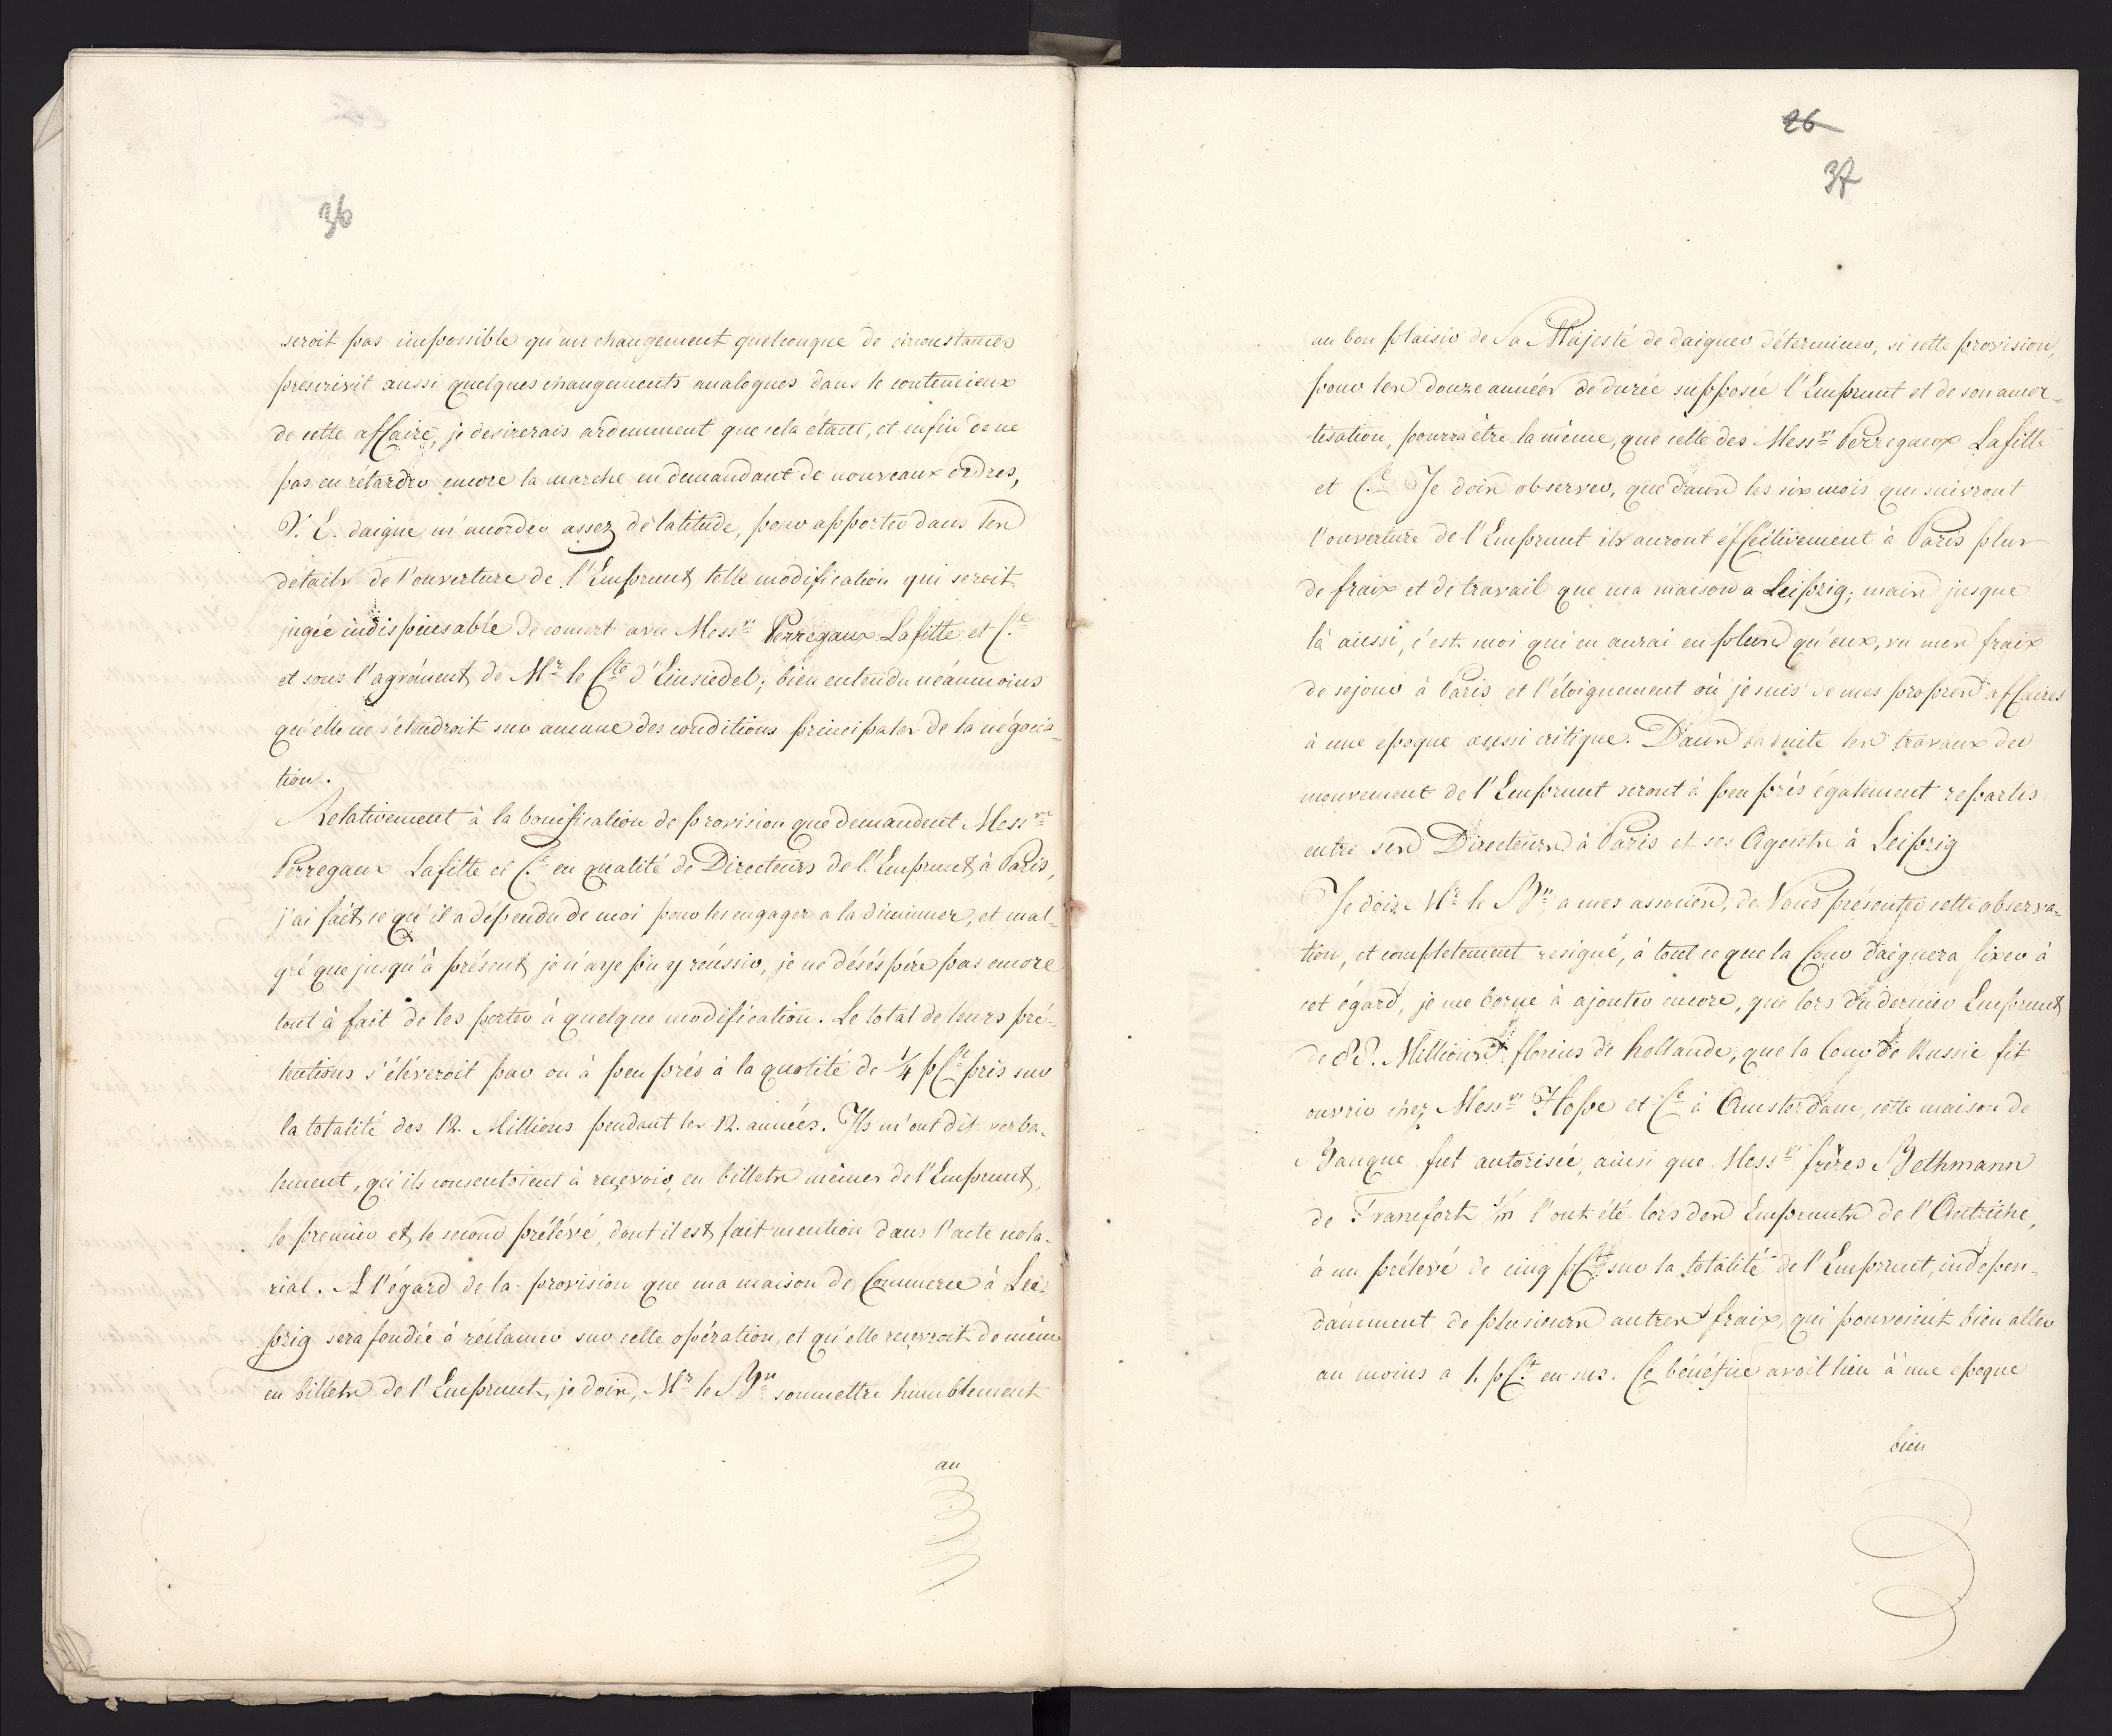 36
seroit pas impossible qu'un changement quelconque de circonstances
prescrivit aussi quelques changements analogues dans le contenieux
de cette affaire, je desirerais ardemment que cela étant, et enfin de ne
pas en rétarder encore la marche en demandant de nouveaux ordres,
V. E. daigne m'accorder assez de latitude, pour apporter dans les
détails de l'ouverture de l'Emprunt telle modification qui seroit
jugée indispensable de concert avec Mess.rs Perregaux Lafitte et C.ie
et sous l'agrément de M.r le C.te d'Einsiedel; bien entendu néanmoins
qu'elle ne s'étendroit sur aucune des conditions principales de la négocia-
tion.
Relativement à la bonification de provision que demandent Mess.rs
Perregaux Lafitte et C.ie en qualité de Directeurs de l'Emprunt à Paris,
j'ai fait ce qu'il a dépendu de moi pour les engager a la diminuer, et mal-
gré que jusqu'à présent je n'aye pu y réussir, je ne déséspére pas encore
tout à fait de les porter à quelque modification. Le total de leurs pré-
tentions s'éléveroit par an à peu prés à la quotité de 1/4 pC.t pris sur
la totalité des 12. Millions pendant les 12. années. Ils m'ont dit verba-
lement, qu'ils consentoient à reçevoir, en billets mêmes de l'Emprunt,
le premier et le second prélévé, dont il est fait mention dans l'acte nota-
rial. A l'égard de la provision que ma maison de Commerce à Lei-
pzig sera fondée à réclamer sur cette opération, et qu'elle reçevroit de même
en billets de l'Emprunt, je dois, M.r le B.on soumettre humblement
au
26
37
au bon plaisir de Sa Majesté de daigner déterminer, si cette provision,
pour les douze années de durée supposée l'Emprunt et de son amor-
tisation, pourra être la même, que celle des Mess.rs Perregaux Lafitte
et C.ie Je dois observer, que dans les six mois qui suivront
l'ouverture de l'Emprunt ils auront éffectivement à Paris plus
de fraix et de travail que ma maison a Leipzig; mais jusque
là aussi, c'est moi qui en aurai en plus qu'eux, vu mes fraix
de sejour à Paris et l'éloignement où je suis de mes propres affaires
à une époque aussi critique. Dans la suite les travaux du
mouvement de l'Emprunt seront à peu prés également repartis
entre ses Directeurs à Paris et ses Agents à Leipzig
Je dois M.r le B.on, a mes associés, de Vous présenter cette observa-
tion, et completement resigné, à tout ce que la Cour daignera fixer à
cet égard, je me borne à ajouter encore, que lors du dernier Emprunt
de 88. Millions florins de hollande, que la Cour de Russie fit
ouvrir chez Mess.rs Hope et C.ie à Amsterdam, cette maison de
Banque fut autorisée, ainsi que Mess.rs frères Bethmann
de Francfort s/m l'ont été lors des Emprunts de l'Autriche,
à un prélevé de cinq pC.t sur la totalité de l'Emprunt, indepen-
damment de plusieurs autres fraix, qui pouvoient bien aller
au moins a 1. pC.t en sus. Ce bénéfice avoit lieu à une époque
bien